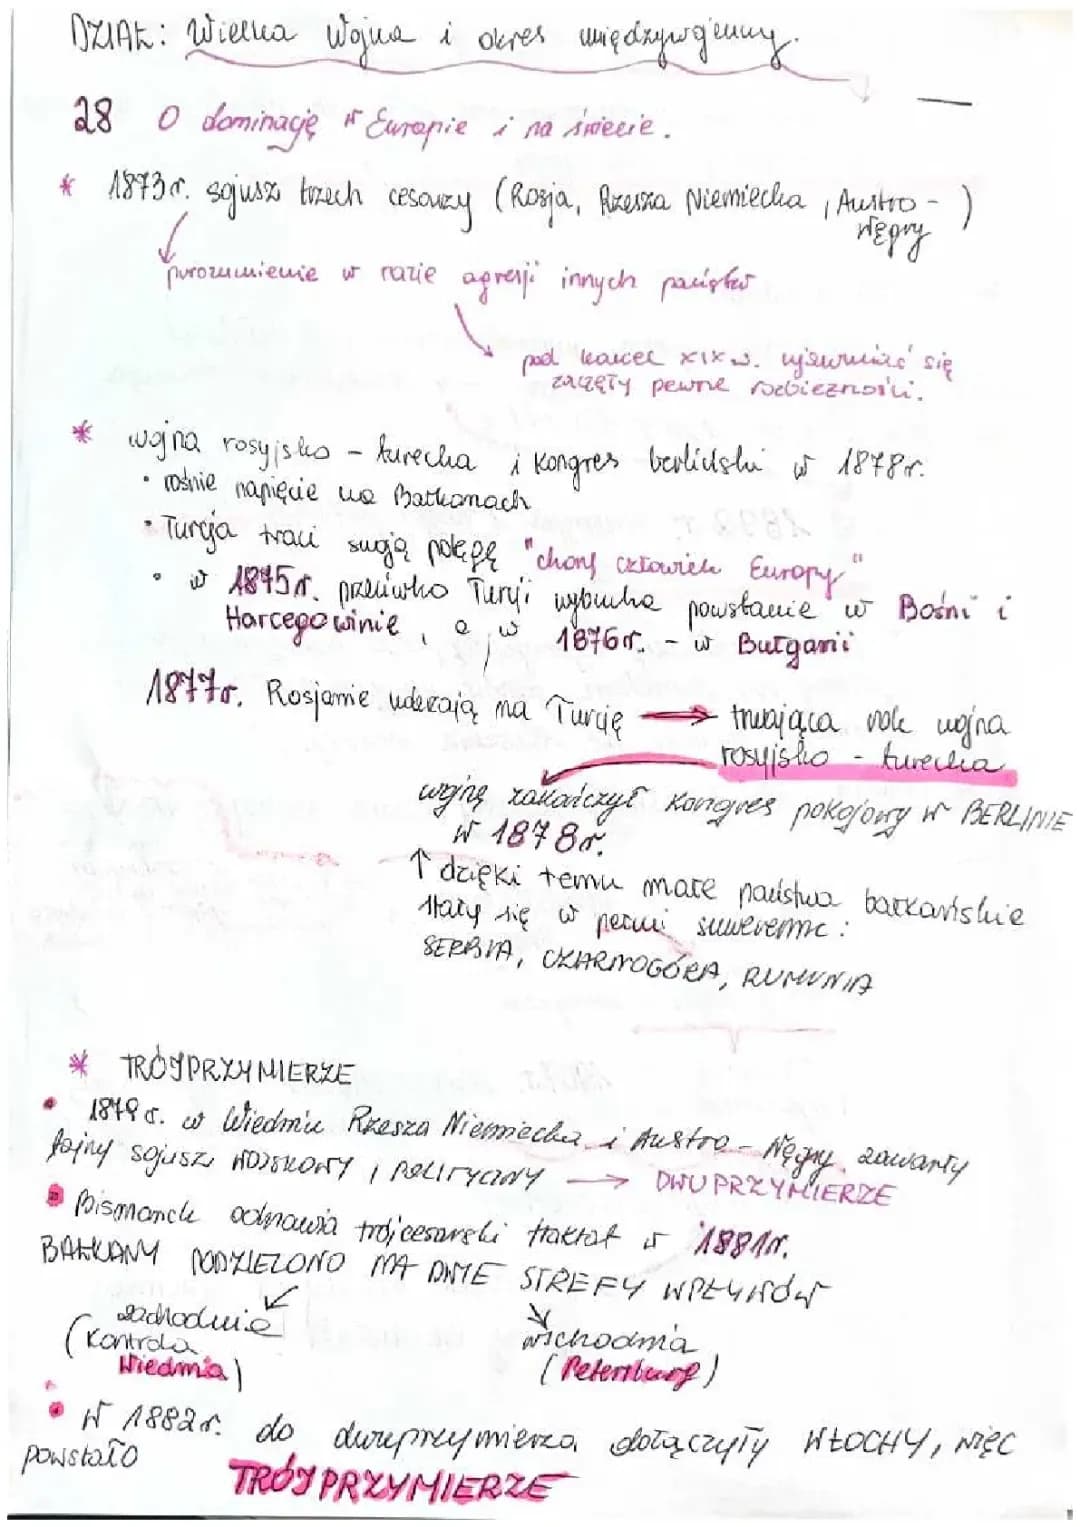 DZIAŁ: Wielka Wojna i okres międzywojenny.
28 O dominację w Europie i na świecie.
* 1873r. sojusz trzech cesarzy (Rosja, Rzesza Niemiecka, Austro-Węgry)
porozumienie w razie agresji innych państw
pod koniec XIX w. ujawniać się
zaczęły pewne rozbieżności.
* wojna rosyjsko - turecka i kongres berliński w 1878r.
• rośnie napięcie na Bałkanach
• Turcja traci swoją potęgę "chory człowiek Europy"
• w 1875r. przeciwko Turcji wybucha powstanie w Bośni i
Harcegowinie, a w 1876r. - w Bułgarii
1877r. Rosjanie uderzają na Turcję → trwająca rok wojna
rosyjsko - turecka
wojnę zakończył kongres pokojowy w BERLINIE
w 1878r.
↑ dzięki temu małe państwa bałkańskie
stały się w pełni suwerenne:
SERBIA, CZARNOGÓRA, RUMUNIA
* TRÓJPRZYMIERZE
• 1879r. w Wiedniu Rzesza Niemiecka i Austro-Węgry zawarły
tajny sojusz WOJSKOWY i POLITYCZNY → DWUPRZYMIERZE
• Bismarck odnawia trójcesarski traktat w 1881r.
BAŁKANY PODZIELONO NA DWIE STREFY WPŁYWÓW
zachodnie wschodnia
(kontrola (Petersburg)
Wiednia)
• W 1882r. do dwuprzymierza dołączyły WŁOCHY, więc
powstało
TRÓJPRZYMIERZE